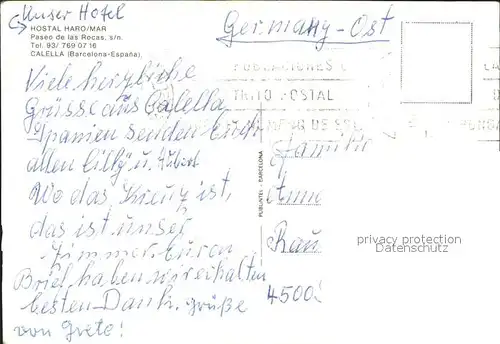 Unser Hotel
HOSTAL HARO/MAR
Paseo de las Rocas, s/n.
Tel. 93/ 769 07 16
CALELLA (Barcelona-España).
Germany-Ost
POBLACIONES
TRITO POSTAL
Viele herzliche
Grüsse aus Calella
Spanien senden Euch
allen Lilly u. Hubert
Wo das Kreuz ist,
das ist unser
Zimmer. Euren
Brief haben wir erhalten
besten Dank. Grüße
von Grete!
PUBLINTEL - BARCELONA
Familie
Anne
Rau
4500
privacy protection
oldthing.de